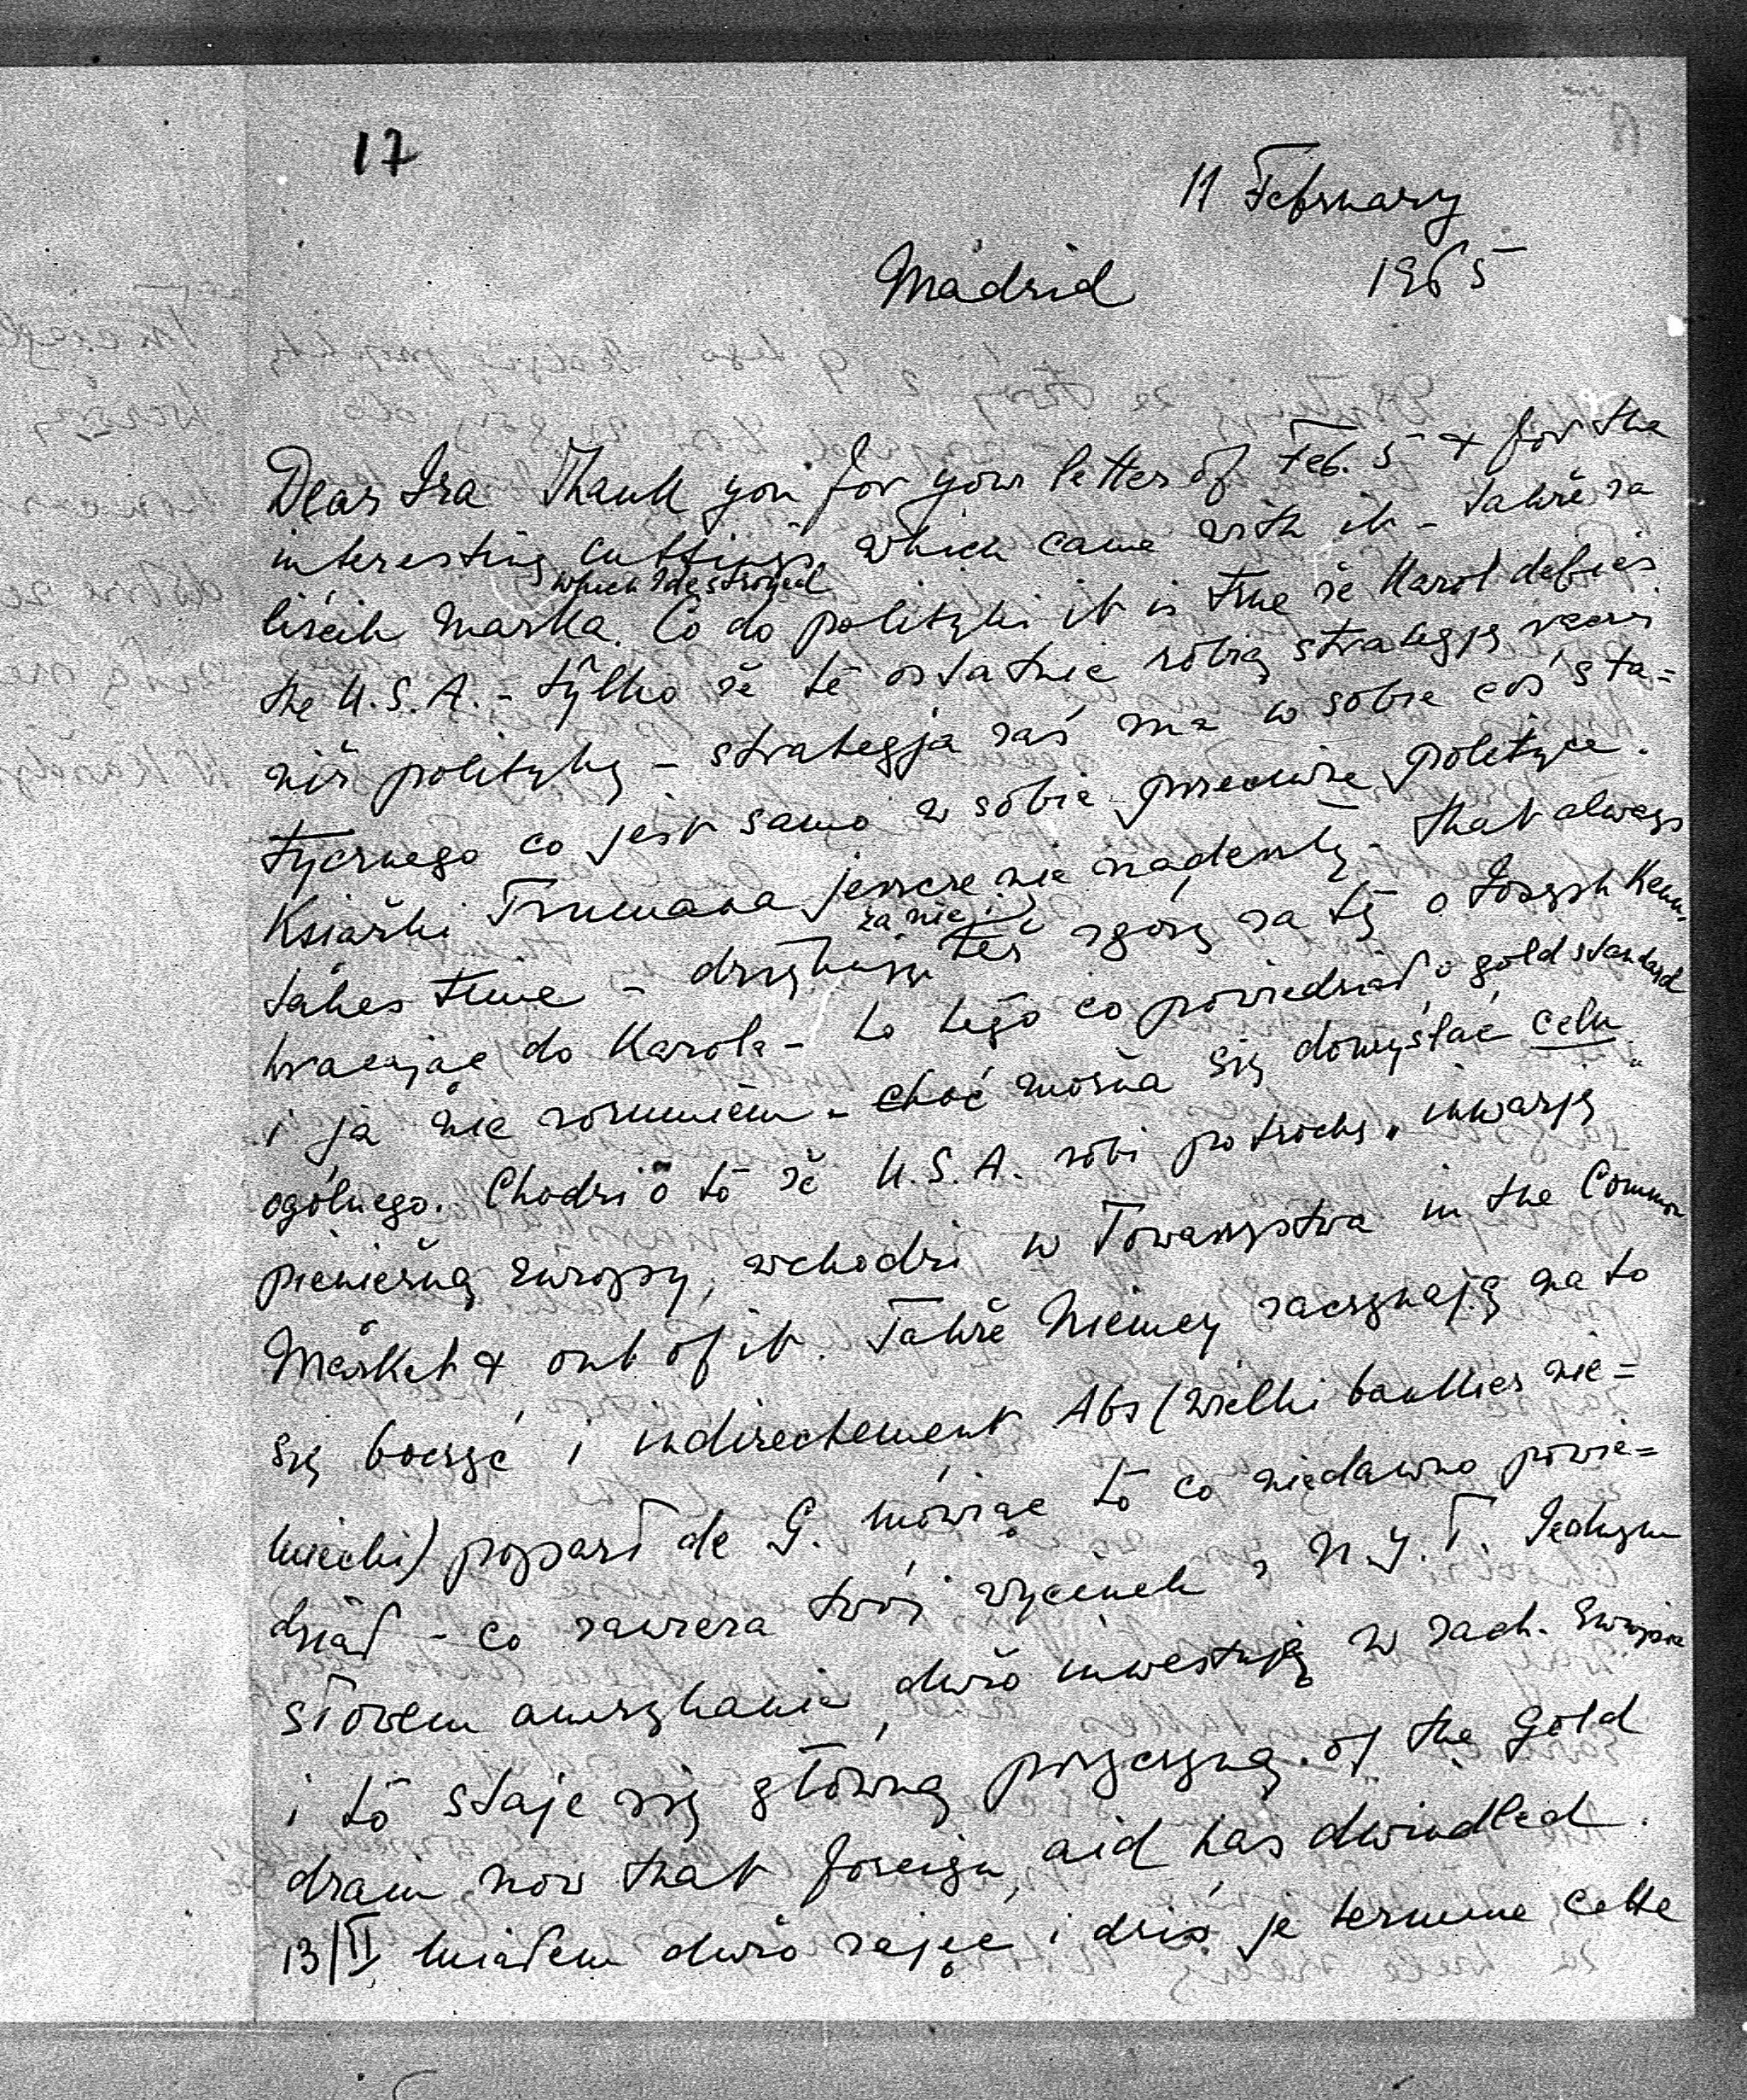 17
11 February
Madrid 1965
Dear Ira Thank you for your letter of Feb. 5 & for the
interesting cuttings which came with it - także za
which I destroyed
liścik Marka. Co do polityki it is true że Karol defies
the U.S.A. - tylko że te ostatnie robią strategję raczej
niż politykę - strategja zaś ma w sobie coś sta=
tycznego co jest samo w sobie przeciwne polityce.
Książki Trumana jeszcze nie nadeszły - that always
za nie i
takes time - dziękuję też zgóry za tę o Joseph Kenn.
wracając do Karola - to tego co powiedział o gold standard
i ja nie rozumiem - choć można się domyślać celu
ogólnego. Chodzi o to że U.S.A. robi potrochu „inwazję"
pieniężną Europy, wchodzi w Towarzystwa in the Common
Market & out of it. Także Niemcy zaczynają na to
się boczyć i indirectement Abs (wielki bankier nie=
miecki) poparł de G. mówiąc to co niedawno powie=
dział - co zawiera twój wycinek z N.Y.T. Jednym
słowem amerykanie dużo inwestują w zach. Europie
i to staje się główną przyczyną of the gold
drain now that foreign aid has dwindled.
13/II miałem dużo zajęć i dziś je termine cette